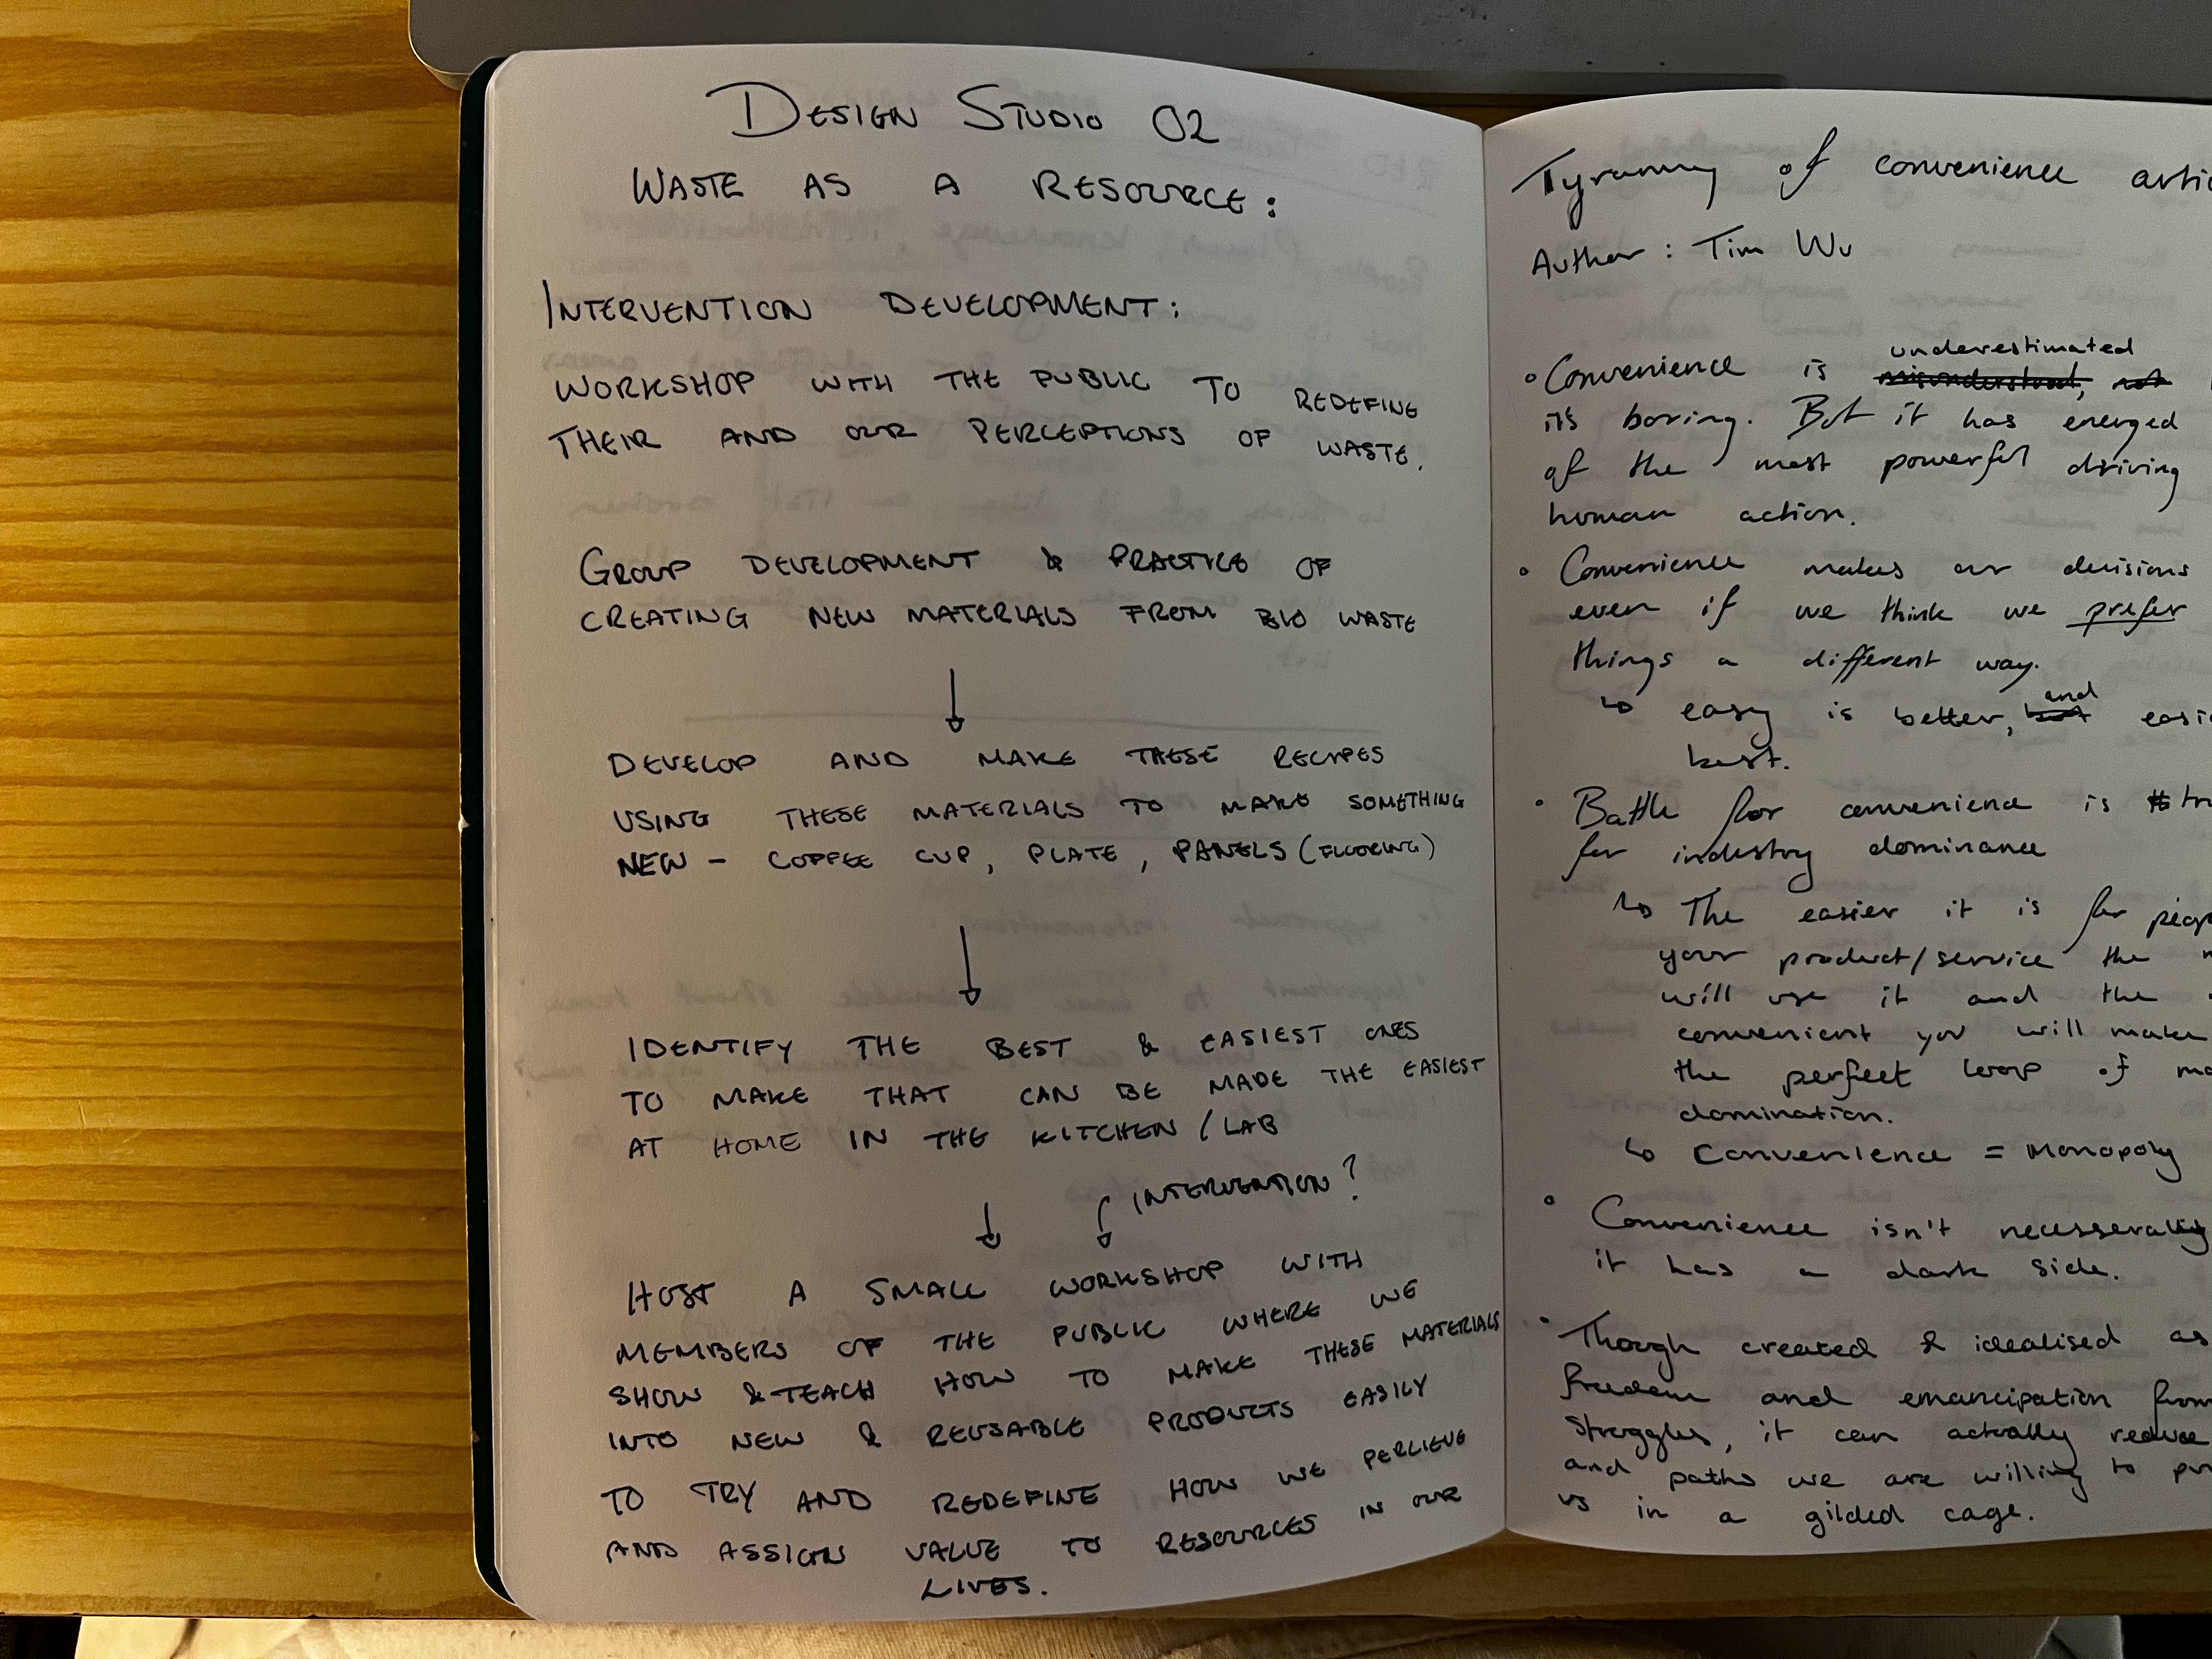 DESIGN STUDIO 02
WASTE AS A RESOURCE:
INTERVENTION DEVELOPMENT:
WORKSHOP WITH THE PUBLIC TO REDEFINE
THEIR AND OUR PERCEPTIONS OF WASTE.
GROUP DEVELOPMENT & PRACTICE OF
CREATING NEW MATERIALS FROM BIO WASTE
↓
DEVELOP AND MAKE THESE RECIPES
USING THESE MATERIALS TO MAKE SOMETHING
NEW - COFFEE CUP, PLATE, PANELS (FLOORING)
↓
IDENTIFY THE BEST & EASIEST ONES
TO MAKE THAT CAN BE MADE THE EASIEST
AT HOME IN THE KITCHEN / LAB
↓ INTERVENTION?
HOST A SMALL WORKSHOP WITH
MEMBERS OF THE PUBLIC WHERE WE
SHOW & TEACH HOW TO MAKE THESE MATERIALS
INTO NEW & REUSABLE PRODUCTS EASILY
TO TRY AND REDEFINE HOW WE PERCIEVE
AND ASSIGN VALUE TO RESOURCES IN OUR
LIVES.
Tyranny of convenience
Author : Tim Wu
underestimated
• Convenience is misunderstood, not
its boring. But it has emerged
of the most powerful driving
human action.
• Convenience makes our decisions
even if we think we prefer
things a different way.
and
↳ easy is better,
best.
• Battle for convenience is
for industry dominance
↳ The easier it is for
your product/service the
will use it and the
convenient you will make
the perfect loop of
domination.
↳ Convenience = Monopoly
• Convenience isn't necesserally
it has a dark side.
• Though created & idealised as
freedom and emancipation from
struggles, it can actually reduce
and paths we are willing to
us in a gilded cage.